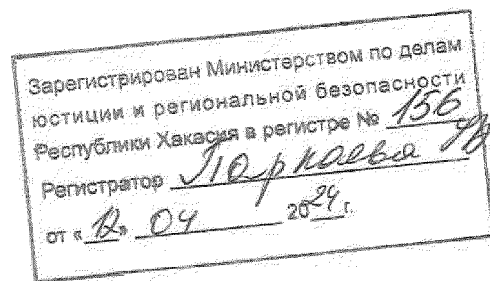 Зарегистрирован Министерством по делам
юстиции и региональной безопасности
Республики Хакасия в регистре № 156
Регистратор
от «12» 04 2024 г.